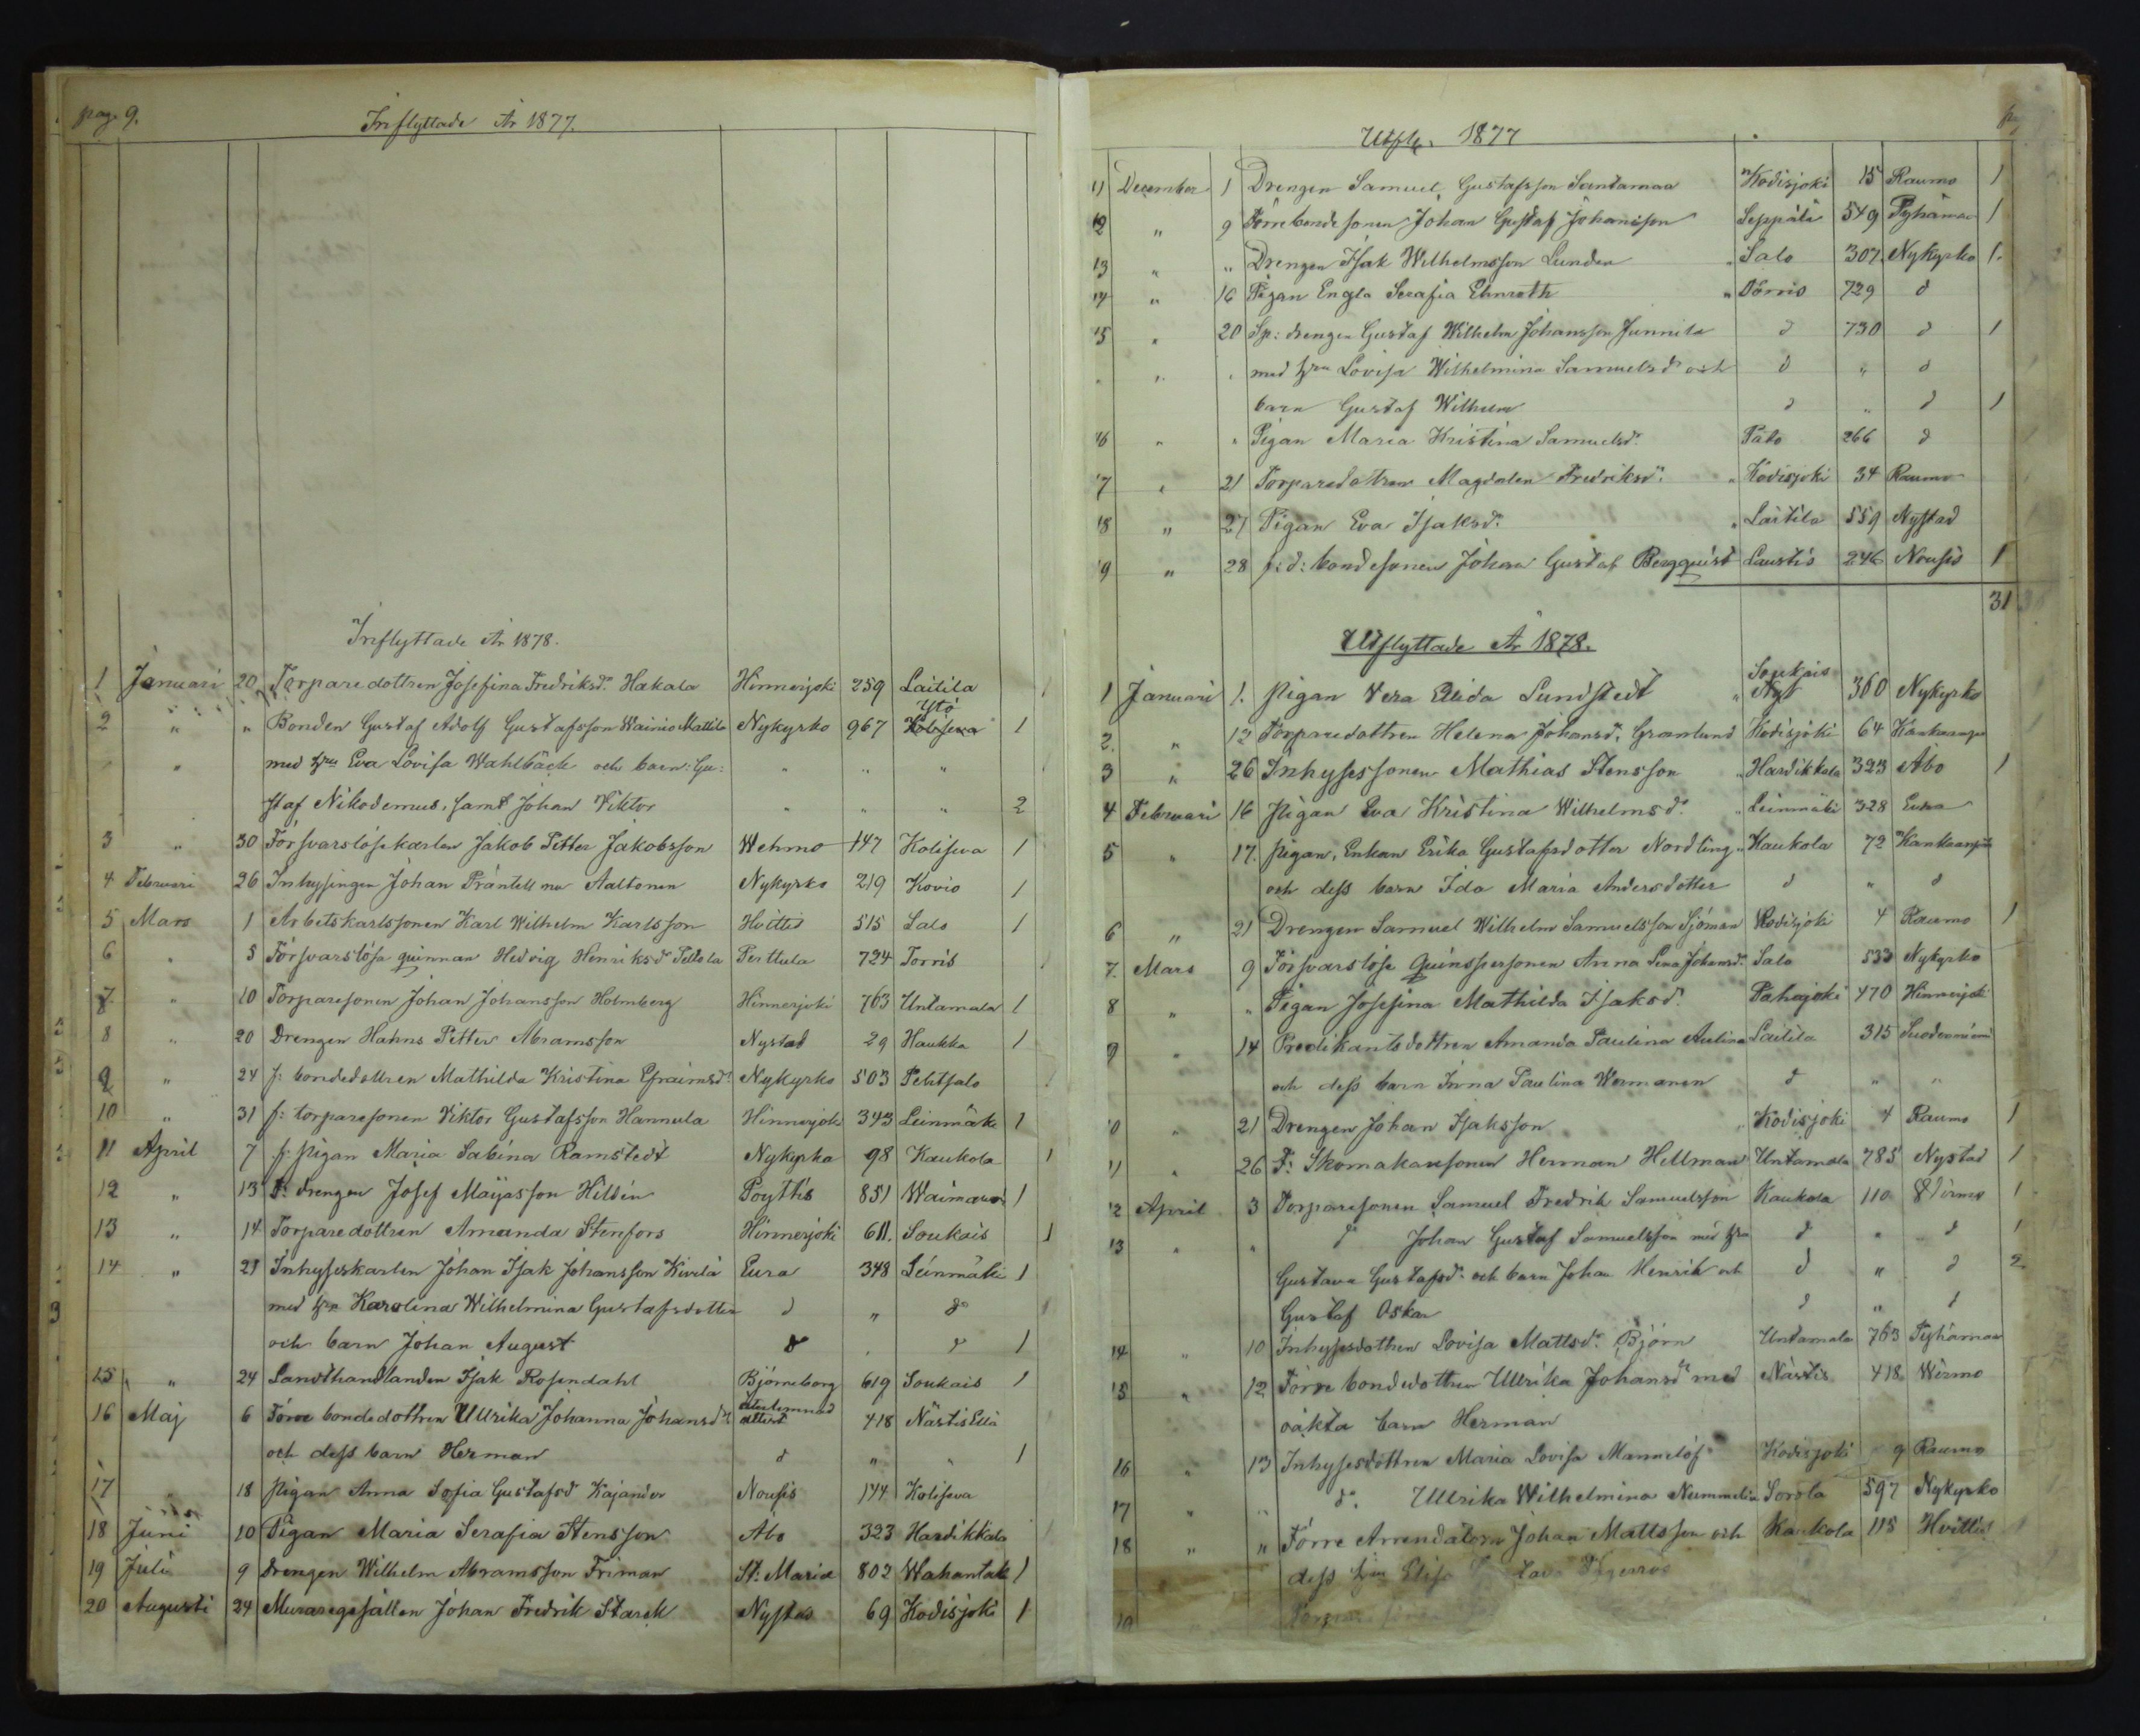 pag. 9.
Inflyttade År 1877.
Inflyttade År 1878.
1 Januari 20 Torparedottren Josefina Fredriksdr Hakala Hinnerjoki 259 Laitila
2 " " Bonden Gustaf Adolf Gustafsson Wainio Mattila Nykyrko 967 Ytö 1
" med hru Eva Lovisa Wahlbäck och barn: Gu: " " "
staf Nikodemus, samt Johan Viktor " " " 2
3 " 30 Försvarslösekarlen Jakob Petter Jakobsson Wehmo 147 Kolisewa 1
4 Februari 26 Inhysingen Johan Präntell nu Aaltonen Nykyrko 219 Kovio 1
5 Mars 1 Arbetskarlssonen Karl Wilhelm Karlsson Hvittis 515 Salo 1
6 " 5 Försvarslösa quinnan Hedvig Henriksdr Pertola Perttula 724 Torris
7 " 10 Torparesonen Johan Johansson Holmberg Hinnerjoki 763 Untamala 1
8 " 20 Drengen Hahns Petter Abramsson Nystad 29 Haukka 1
9 " 24 f: bondedottren Mathilda Kristina Efraimsdr Nykyrko 503 Pehtsalo
10 " 31 f: torparesonen Viktor Gustafsson Hannula Hinnerjoki 343 Leinmäki 1
11 April 7 f: pigan Maria Sabina Ramstedt Nykyrko 98 Kaukola 1
12 " 13 F: drengen Josef Maijasson Hildén Pöytis 851 Waimaro 1
13 " 14 Torparedottren Amanda Stenfors Hinnerjoki 611. Soukais 1
14 " 21 Inhyseskarlen Johan Isak Johansson Kivilä Eura 348 Leinmäki 1
med hru Karolina Wilhelmina Gustafsdotter d " do
och barn Johan August d " d 1
15 " 24 Landthandlanden Isak Rosendahl Björneborg 619 Soukais 1
16 Maj 6 Förre bondedottren Ullrika Johanna Johansdr återlemnad attest 418 Nästis Eilä
och dess barn Herman d " " 1
17 18 Pigan Anna Sofia Gustafsdr Kajander Nousis 144 Kolisewa
18 Juni 10 Pigan Maria Serafia Stensson Åbo 323 Hardikkala
19 Juli 9 Drengen Wilhelm Abramsson Friman St: Maria 802 Wahantak 1
20 Augusti 24 Muraregesällen Johan Fredrik Starck Nystad 69 Kodisjoki 1
Utfl. 1877
11 December 1 Drengen Samuel Gustafsson Santamaa Kodisjoki 15 Raumo 1
12 " 9 Förre bondesonen Johan Gustaf Johansson Seppälä 549 Pyhämaa 1
13 " " Drengen Isak Wilhelmsson Lunden " Salo 307 Nykyrko 1.
14 " 16 Pigan Engla Serafia Ehnroth " Torris 729 d
15 " 20 Sp: drengen Gustaf Wilhelm Johansson Junnila d 730 d 1
" " " med hru Lovisa Wilhelmina Samuelsdr och d " d
barn Gustaf Wilhelm d " d 1
16 " " Pigan Maria Kristina Samuelsdr Pato 266 d
17 " 21 Torparedottren Magdalena Fredriksdr " Kodisjoki 34 Raumo
18 " 27 Pigan Eva Isaksdr " Laitila 559 Nystad
19 " 28 f: d: bondesonen Johan Gustaf Bergquist Laustis 246 Nousis 1
31
Utflyttade År 1878.
1 Januari 1. Pigan Vera Elida Lundstedt " Soukais 360 Nykyrko
2. " 12 Torparedottren Helena Johansdr Granlund Kodisjoki 64 Kankaanpää
3 " 26 Inhysessonen Mathias Stensson " Hardikkala 323 Åbo 1
4 Februari 16 Pigan Eva Kristina Wilhelmsdr " Leinmäki 328 Eura
5 " 17. Pigan, Enkan Erika Gustafsdotter Nordling " Kaukola 72 Kankaanpää
och dess barn Ida Maria Andersdotter d " d
6 " 21 Drengen Samuel Wilhelm Samuelsson Sjöman Kodisjoki 4 Raumo 1
7. Mars 9 Försvarslösa Quinspersonen Anna Lena Johansdr Salo 533 Nykyrko
8 " " Pigan Josefina Mathilda Isaksdr Pahojoki 470 Hinnerjoki
9 " 14 Predikantsdottren Amanda Paulina Aulina Laitila 315 Suodenniemi
och dess barn Inna Paulina Wermanen d " "
10 " 21 Drengen Johan Isaksson " Kodisjoki 4 Raumo 1
11 " 26 F: Skomakaresonen Herman Hellman Untamala 785 Nystad 1
12 April 3 Torparesonen Samuel Fredrik Samuelsson Kaukola 110 Virmo 1
13 " " do Johan Gustaf Samuelsson med hru d " d 1
Gustava Gustafsdr och barn Johan Henrik och d " d 2
Gustaf Oskar d " d
14 " 10 Inhysesdottren Lovisa Mattsdr Björn Untamala 763 Pyhämaa
15 " 12 Förre bondedottren Ullrika Johansdr med Nästis 418 Wirmo
oäkta barn Herman
16 " 13 Inhysesdottren Maria Lovisa Mannelöf Kodisjoki 9 Raumo
17 " " do Ullrika Wilhelmina Nummelin Sorola 597 Nykyrko
18 " " Förre Arrendatorn Johan Mattsson och Kaukola 115 Hvittis
dess hru Elisa
19